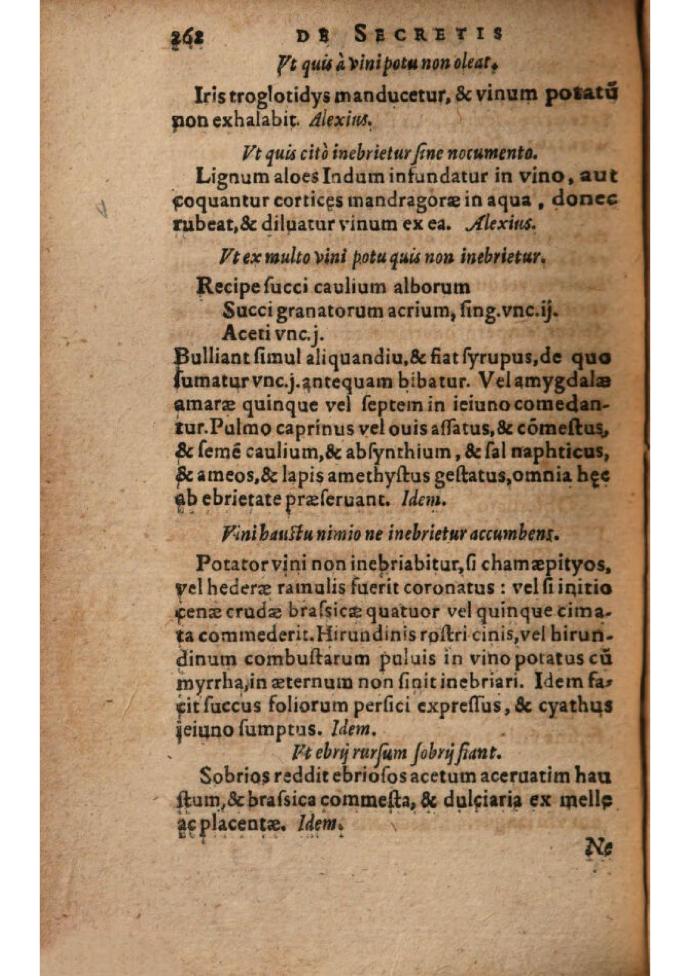 262 DE SECRETIS
Vt quis à vini potu non oleat.
Iris troglotidys manducetur, & vinum potatũ
non exhalabit. Alexius.
Vt quis citò inebrietur ſine nocumento.
Lignum aloes Indum infundatur in vino, aut
coquantur cortices mandragoræ in aqua, donec
rubeat, & diluatur vinum ex ea. Alexius.
Vt ex multo vini potu quis non inebrietur.
Recipe ſucci caulium alborum
Succi granatorum acrium, ſing. vnc. ij.
Aceti vnc. j.
Bulliant ſimul aliquandiu, & fiat ſyrupus, de quo
ſumatur vnc. j. antequam bibatur. Vel amygdalæ
amaræ quinque vel ſeptem in ieiuno comedan-
tur. Pulmo caprinus vel ouis aſſatus, & cõmeſtus,
& ſemẽ caulium, & abſynthium, & ſal naphticus,
& ameos, & lapis amethyſtus geſtatus, omnia hęc
ab ebrietate præſeruant. Idem.
Vini hauſtu nimio ne inebrietur accumbens.
Potator vini non inebriabitur, ſi chamæpityos,
vel hederæ ramulis fuerit coronatus : vel ſi initio
cenæ crudæ braſſicæ quatuor vel quinque cima-
ta commederit. Hirundinis roſtri cinis, vel hirun-
dinum combuſtarum puluis in vino potatus cũ
myrrha, in æternum non ſinit inebriari. Idem fa-
cit ſuccus foliorum perſici expreſſus, & cyathus
ieiuno ſumptus. Idem.
Vt ebrij rurſum ſobrij fiant.
Sobrios reddit ebrioſos acetum aceruatim hau
ſtum, & braſſica commeſta, & dulciaria ex melle
ac placentæ. Idem.
Ne